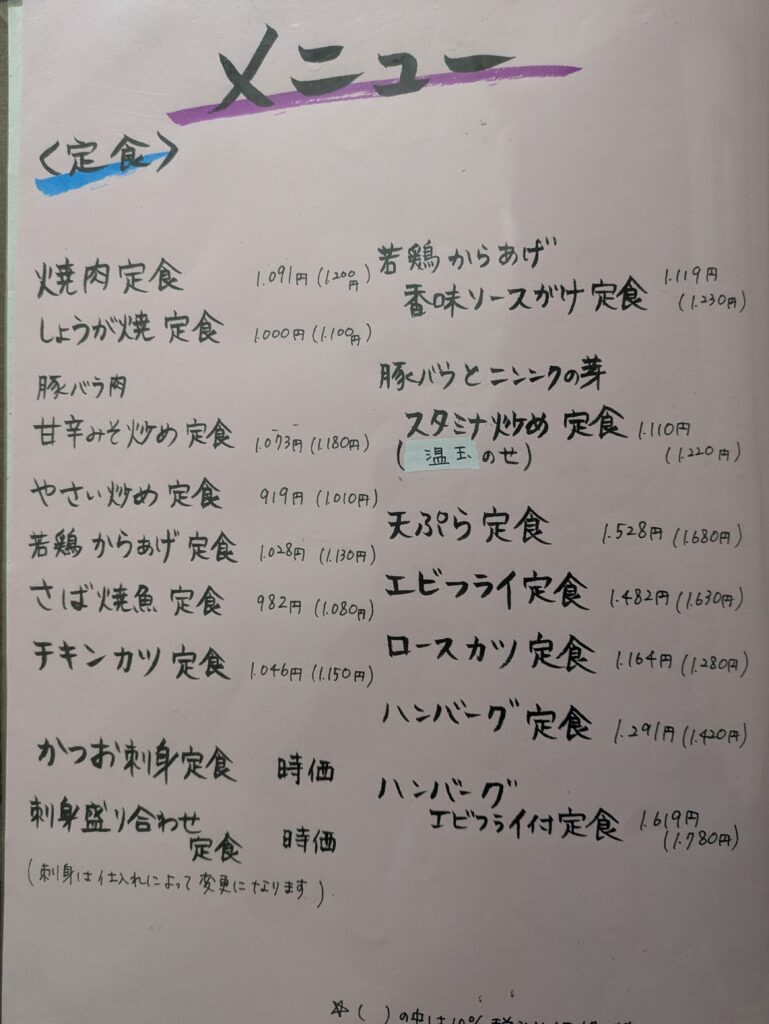 メニュー
〈定食〉
焼肉定食 1.091円(1.200円)
しょうが焼定食 1.000円(1.100円)
豚バラ肉
甘辛みそ炒め定食 1.073円(1.180円)
やさい炒め定食 919円(1.010円)
若鶏からあげ定食 1.028円(1.130円)
さば焼魚定食 982円(1.080円)
チキンカツ定食 1.046円(1.150円)
かつお刺身定食 時価
刺身盛り合わせ
定食 時価
(刺身は仕入れによって変更になります)
若鶏からあげ
香味ソースがけ定食 1.119円
(1.230円)
豚バラとニンニクの芽
スタミナ炒め定食 1.110円
(温玉のせ) (1.220円)
天ぷら定食 1.528円(1.680円)
エビフライ定食 1.482円(1.630円)
ロースカツ定食 1.164円(1.280円)
ハンバーグ定食 1.291円(1.420円)
ハンバーグ
エビフライ付定食 1.619円
(1.780円)
☆( )の中は10%税込